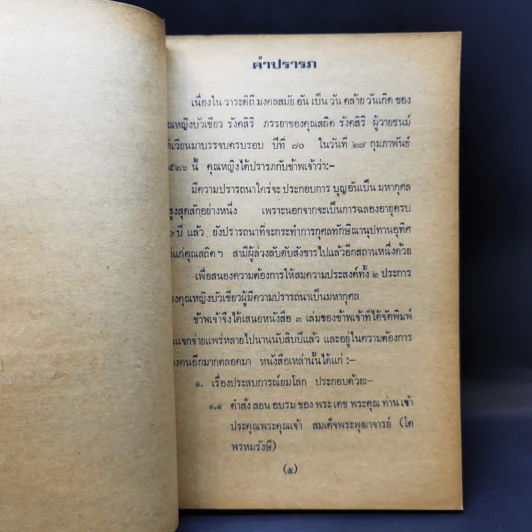 คำปรารภ
เนื่องใน วาระดิถี มงคลสมัย อัน เป็น วัน คล้าย วันเกิด ของ
คุณหญิงบัวเขียว รังคสิริ ภรรยาของคุณสถิต รังคสิริ ผู้วายชนม์
ได้เวียนมาบรรจบครบรอบ ปีที่ ๗๐ ในวันที่ ๒๗ กุมภาพันธ์
๒๕๒๖ นี้ คุณหญิงได้ปรารภกับข้าพเจ้าว่า:-
มีความปรารถนาใคร่จะ ประกอบการ บุญอันเป็น มหากุศล
สูงสุดสักอย่างหนึ่ง เพราะนอกจากจะเป็นการฉลองอายุครบ
๐ ปี แล้ว ยังปรารถนาที่จะกระทำการกุศลทักษิณานุปทานอุทิศ
ให้แก่คุณสถิต ฯ สามีผู้ล่วงลับดับสังขารไปแล้วอีกสถานหนึ่งด้วย
เพื่อสนองความต้องการให้สมความประสงค์ทั้ง ๒ ประการ
ของคุณหญิงบัวเขียวผู้มีความปรารถนาเป็นมหากุศล
ข้าพเจ้าจึงได้เสนอหนังสือ ๓ เล่มของข้าพเจ้าที่ได้จัดพิมพ์
แจกจ่ายแพร่หลายไปนานนับสิบปีแล้ว และอยู่ในความต้องการ
ของคนอีกมากตลอดมา หนังสือเหล่านั้นได้แก่ :-
๑. เรื่องประสบการณ์ยมโลก ประกอบด้วย:-
๑.๑ คำสั่ง สอน อบรม ของ พระ เดช พระคุณ ท่าน เจ้า
ประคุณพระคุณเจ้า สมเด็จพระพุฒาจารย์ (โต
พรหมรังษี)
(๕)